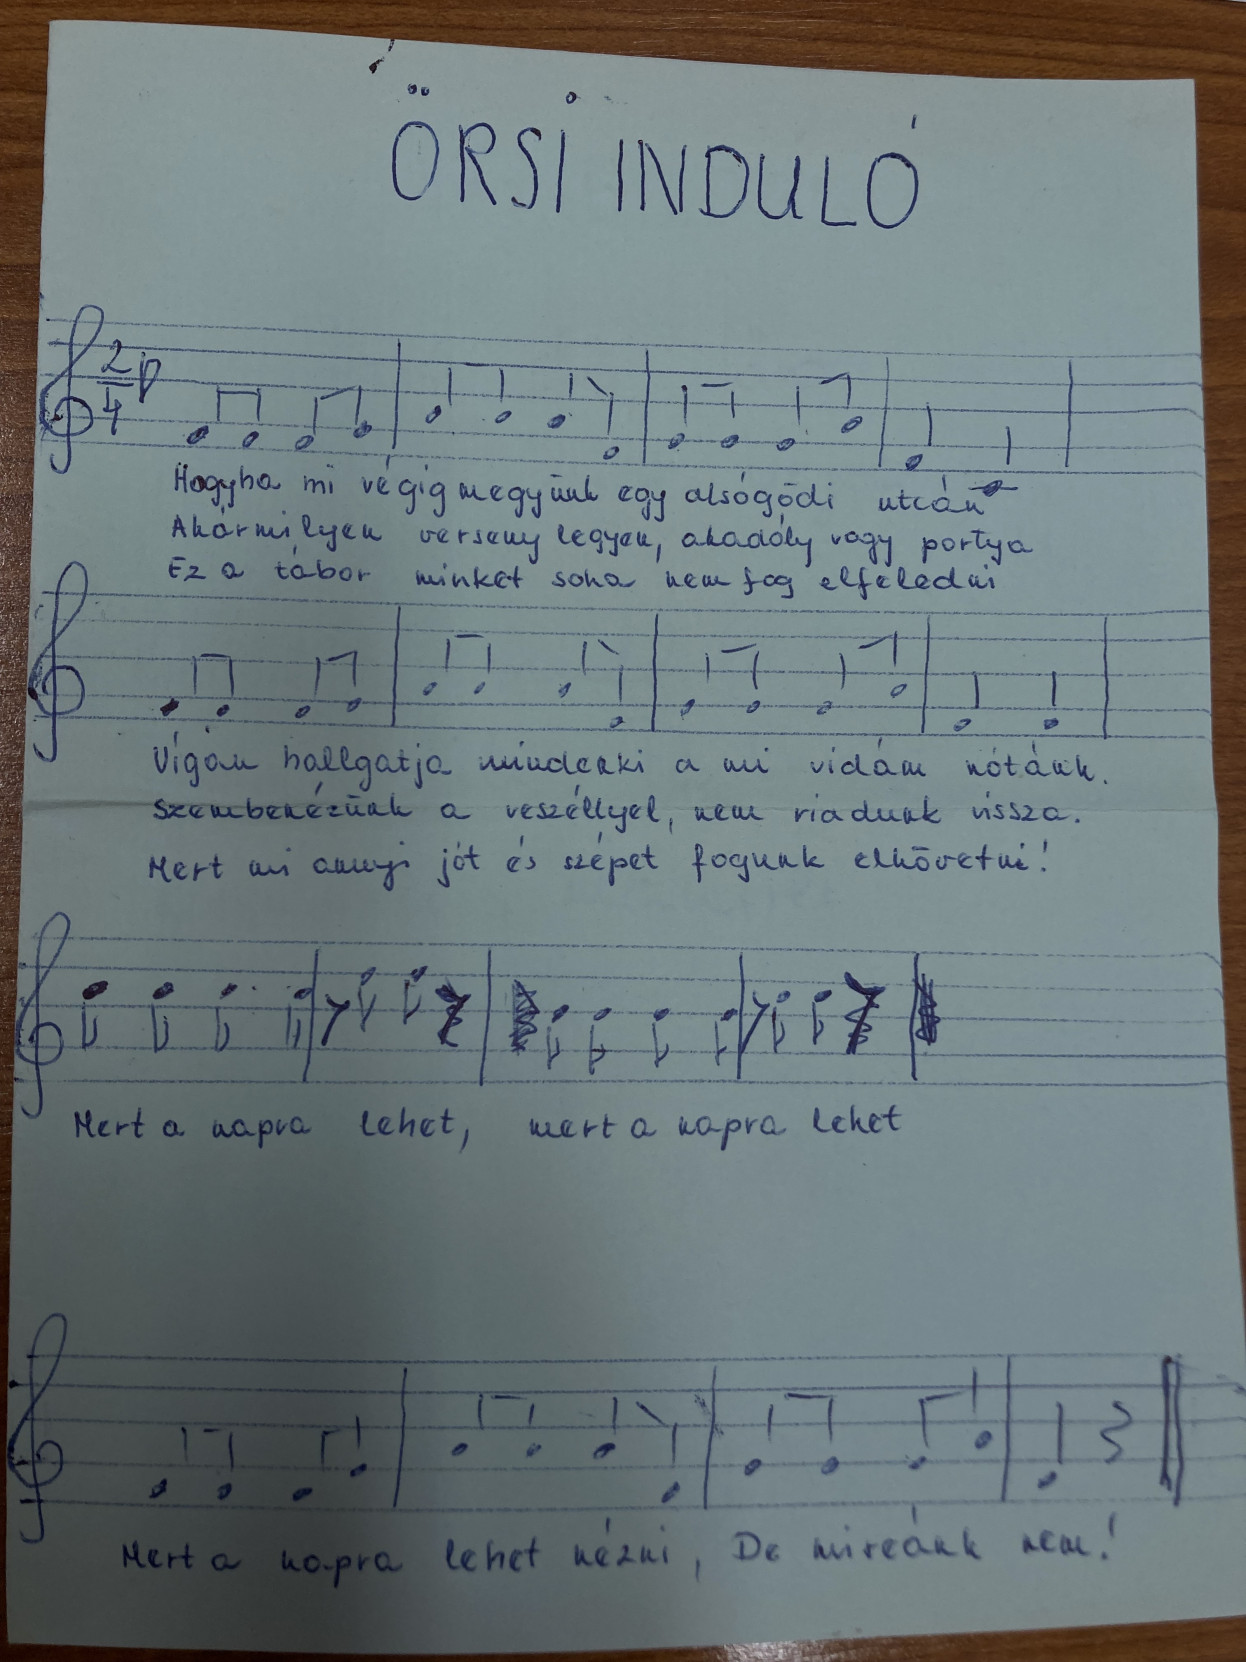 ÖRSI INDULÓ
2
4
Hogyha mi végig megyünk egy alsógödi utcán
Akármilyen verseny legyen, akadály vagy portya
Ez a tábor minket soha nem fog elfeledni
Vígan hallgatja mindenki a mi vidám nótánk.
Szembenézünk a veszéllyel, nem riadunk vissza.
Mert mi annyi jót és szépet fogunk elkövetni!
Mert a napra lehet, mert a napra lehet
Mert a napra lehet nézni, De mireánk nem!